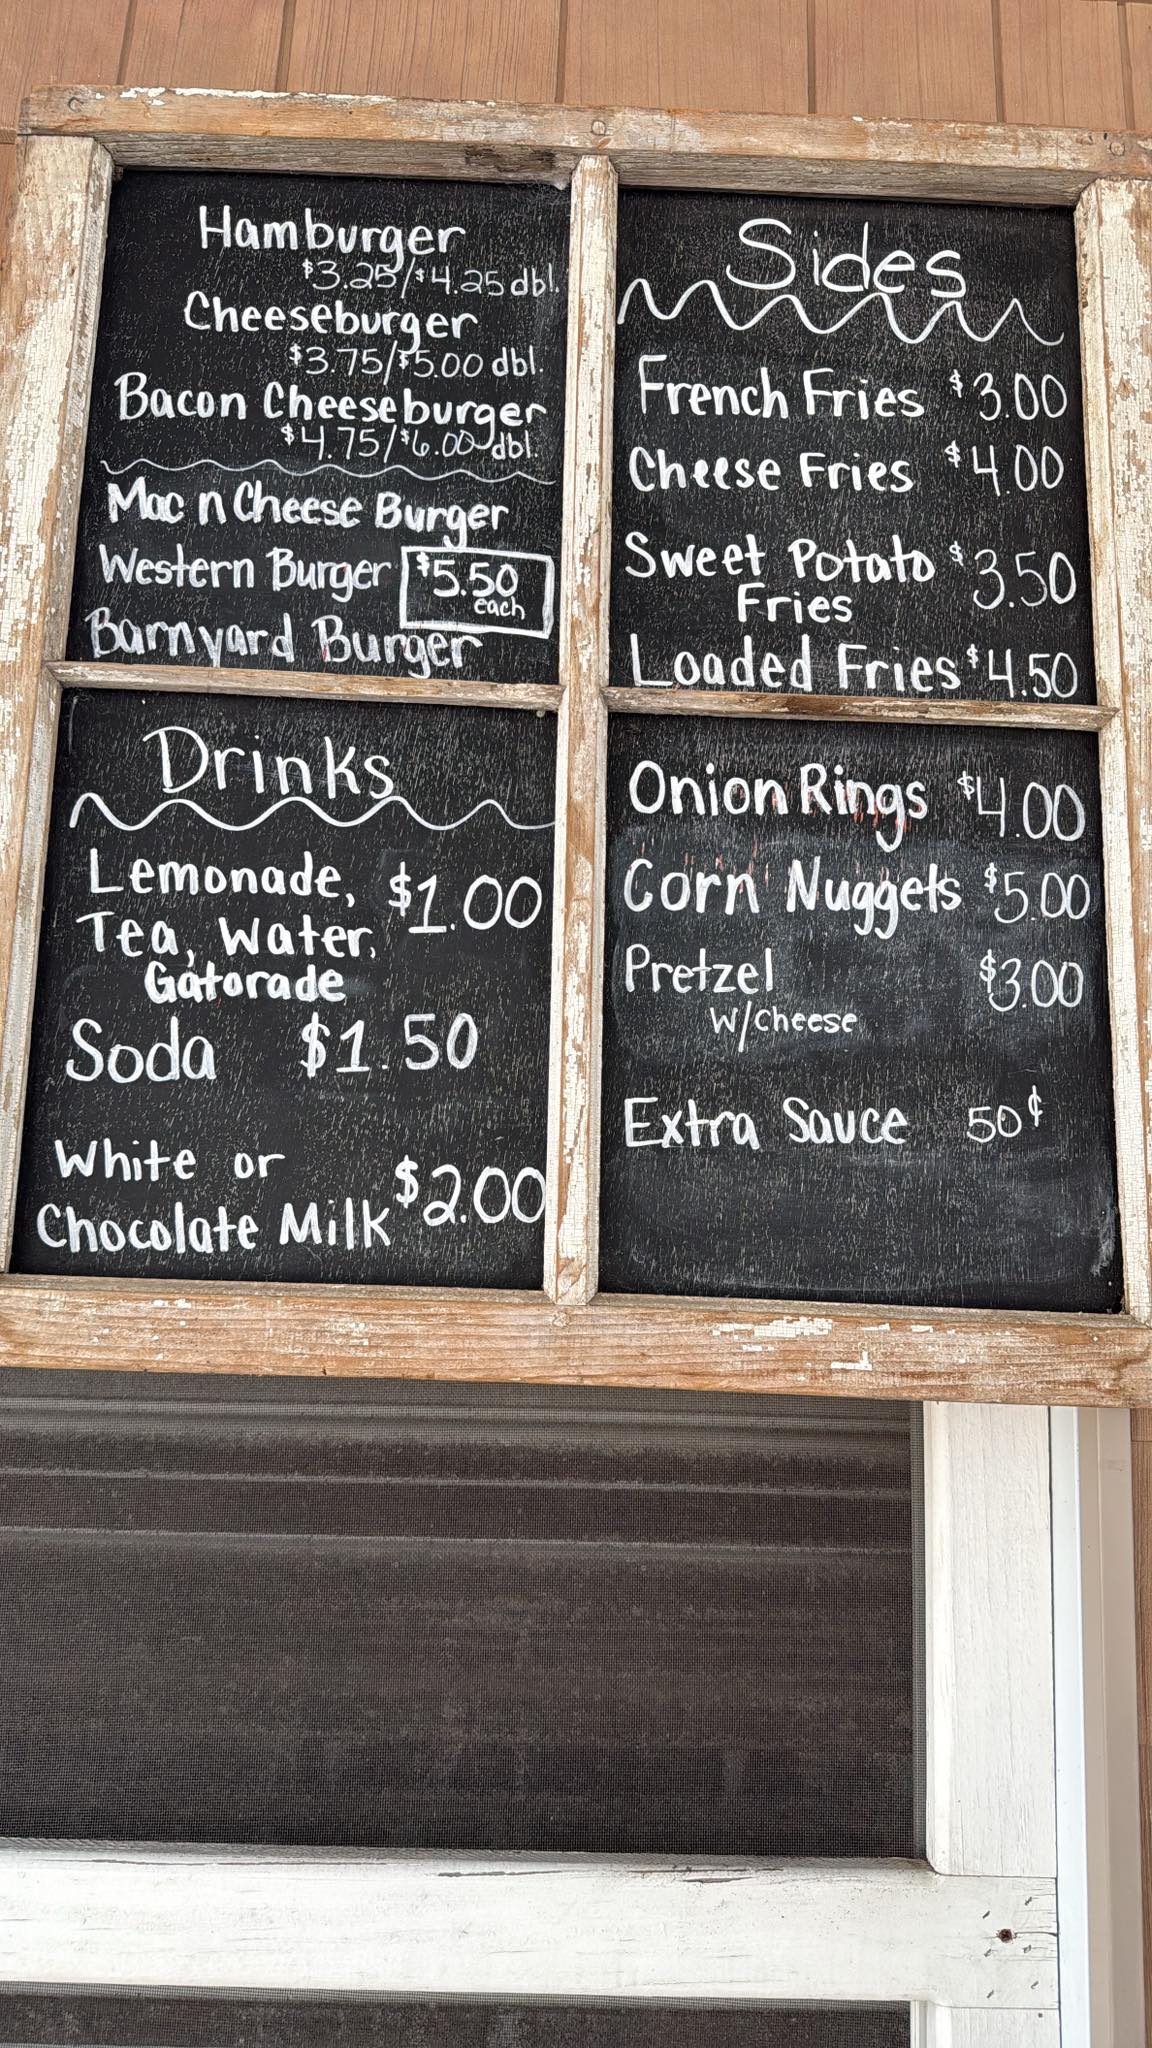 Hamburger
$3.25/$4.25 dbl.
Cheeseburger
$3.75/$5.00 dbl.
Bacon Cheeseburger
$4.75/$6.00 dbl.
Mac n Cheese Burger
Western Burger $5.50 each
Barnyard Burger
Sides
French Fries $3.00
Cheese Fries $4.00
Sweet Potato $3.50
Fries
Loaded Fries $4.50
Drinks
Lemonade, $1.00
Tea, Water,
Gatorade
Soda $1.50
White or
Chocolate Milk $2.00
Onion Rings $4.00
Corn Nuggets $5.00
Pretzel $3.00
w/cheese
Extra Sauce 50¢